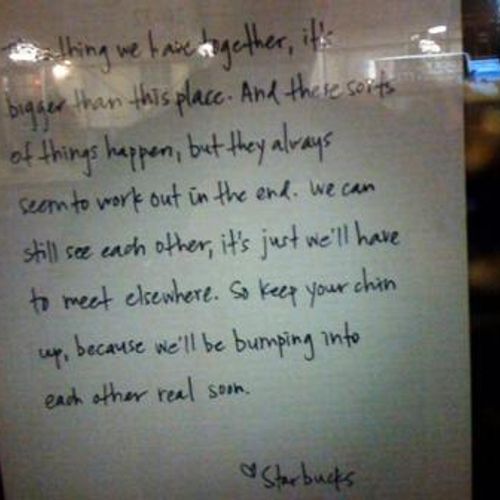 thing we have together, it's
bigger than this place. And these sorts
of things happen, but they always
seem to work out in the end. We can
still see each other, it's just we'll have
to meet elsewhere. So keep your chin
up, because we'll be bumping into
each other real soon.
♡ Starbucks